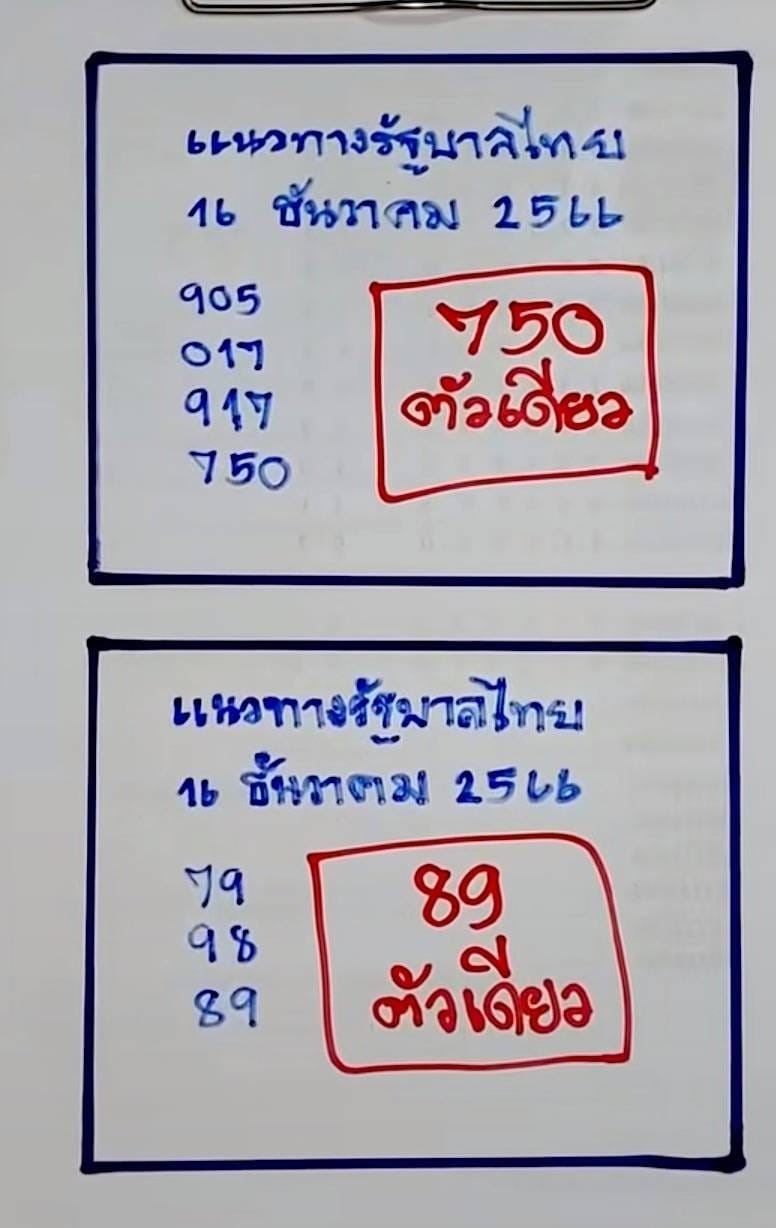 แนวทางรัฐบาลไทย
16 ธันวาคม 2566
905
017
917
750
750
ตัวเดียว
แนวทางรัฐบาลไทย
16 ธันวาคม 2566
79
98
89
89
ตัวเดียว